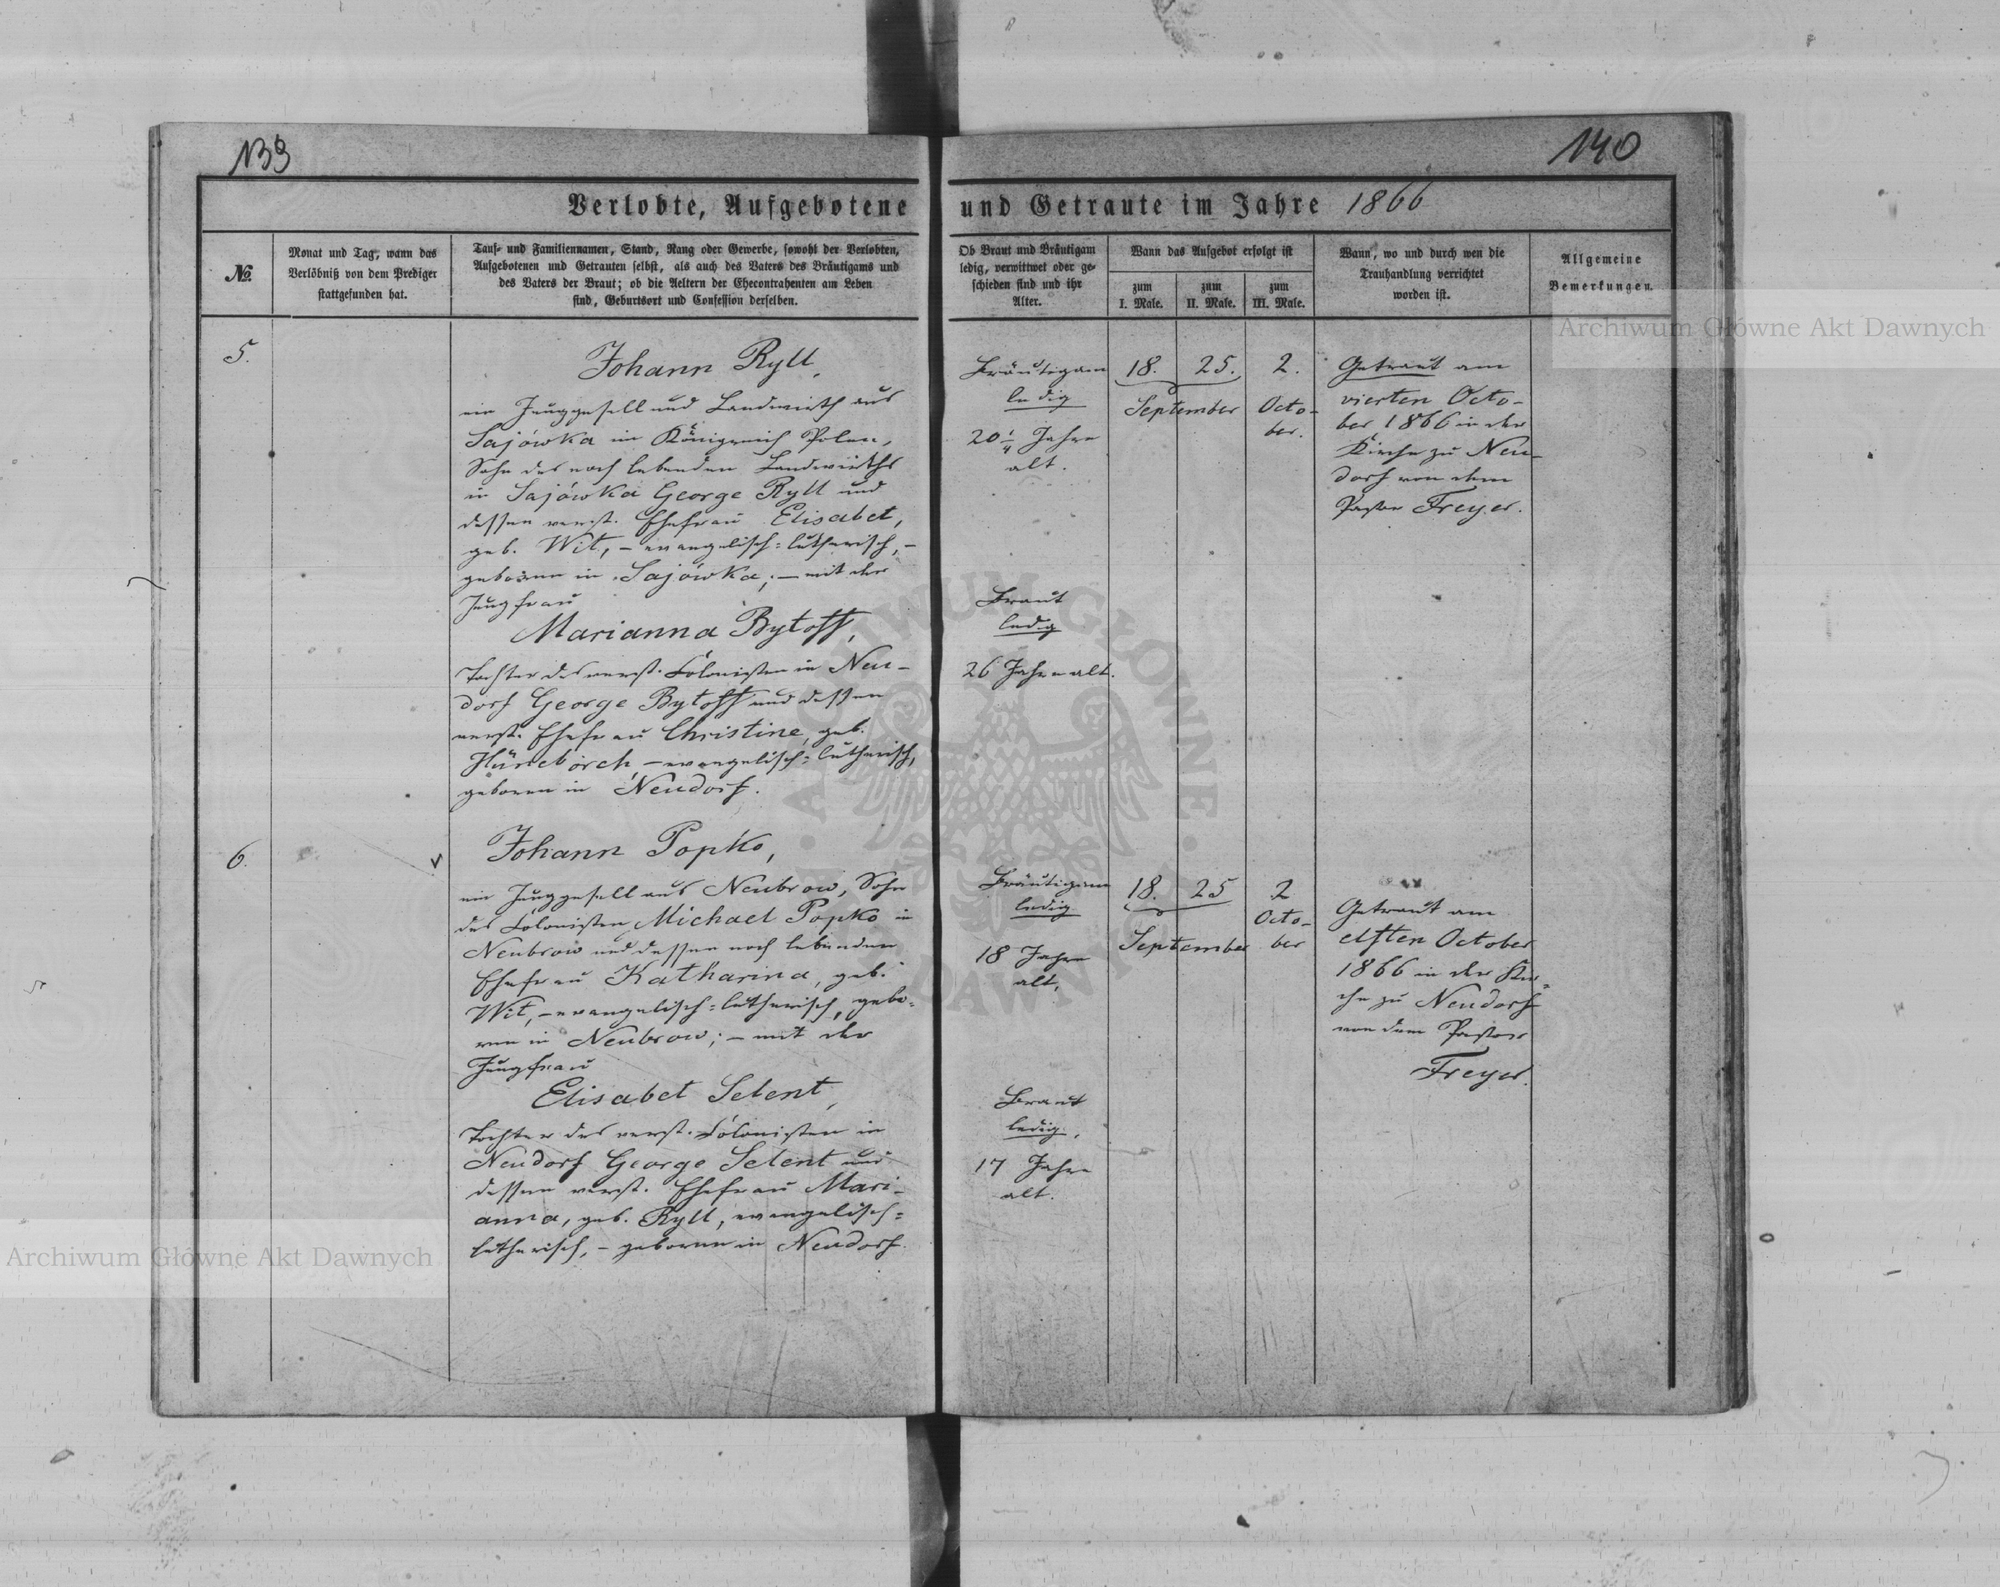 139
140
Verlobte, Aufgebotene und Getraute im Jahre 1866
№.
Monat und Tag, wann das
Verlöbniß von dem Prediger
stattgefunden hat.
Tauf- und Familiennamen, Stand, Rang oder Gewerbe, sowohl der Verlobten,
Aufgebotenen und Getrauten selbst, als auch des Vaters des Bräutigams und
des Vaters der Braut; ob die Aeltern der Ehecontrahenten am Leben
sind, Geburtsort und Confession derselben.
Ob Braut und Bräutigam
ledig, verwittwet oder ge-
schieden sind und ihr
Alter.
Wann das Aufgebot erfolgt ist
zum
I. Male.
zum
II. Male.
zum
III. Male.
Wann, wo und durch wen die
Trauhandlung verrichtet
worden ist.
Allgemeine
Bemerkungen.
5.
Johann Ryll,
ein Junggesell und Landwirth aus
Sajówka im Königreich Polen,
Sohn des noch lebenden Landwirths
in Sajówka George Ryll und
dessen verst. Ehefrau Elisabet,
geb. Wit, – evangelisch=lutherisch, –
geboren in Sajówka; – mit der
Jungfrau
Marianna Bytoff,
Tochter des verst. Colonisten in Neu-
dorf George Bytoff und dessen
verst. Ehefrau Christine, geb.
– evangelisch=lutherisch,
geboren in Neudorf.
Bräutigam
ledig
20 1/4 Jahre
alt.
Braut
ledig
26 Jahre alt.
18. 25. 2.
September Octo-
ber.
Getraut am
vierten Octo-
ber 1866 in der
Kirche zu Neu-
dorf von dem
Pastor Freyer.
6.
Johann Popko,
ein Junggesell aus Neubrow, Sohn
des Colonisten Michael Popko in
Neubrow und dessen noch lebenden
Ehefrau Katharina, geb.
Wit, – evangelisch=lutherisch, gebo-
ren in Neubrow; – mit der
Jungfrau
Elisabet Selent,
Tochter des verst. Colonisten in
Neudorf George Selent und
dessen verst. Ehefrau Mari-
anna, geb. Ryll, evangelisch=
lutherisch, – geboren in Neudorf.
Bräutigam
ledig
18 Jahre
alt,
Braut
ledig,
17 Jahre
alt.
18. 25 2
September Octo-
ber
Getraut am
elften October
1866 in der Kir-
che zu Neudorf
von dem Pastor
Freyer.
Archiwum Główne Akt Dawnych
Archiwum Główne Akt Dawnych
ARCHIWUM GŁÓWNE AKT DAWNYCH